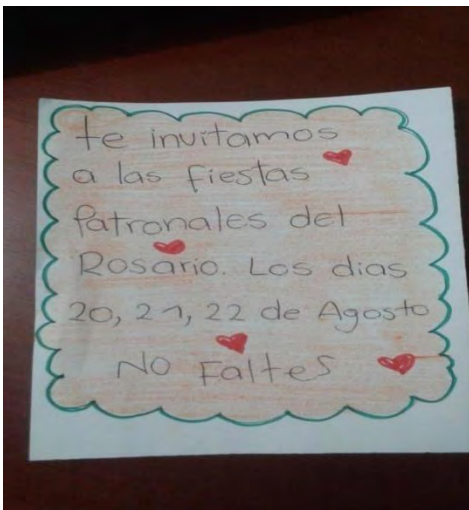 te invitamos
a las fiestas
Patronales del
Rosario. Los dias
20, 21, 22 de Agosto
NO FaltES